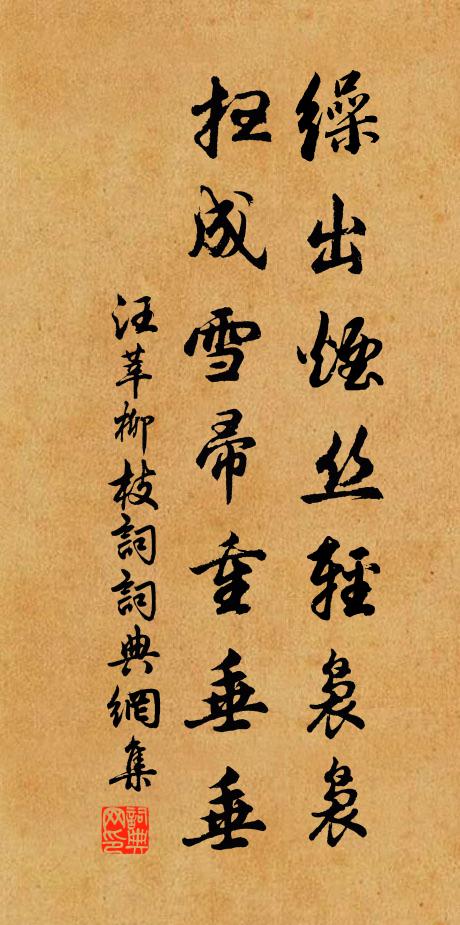 繰出煙丝輕裊裊
扭成雪帚重垂垂
汪莘柳枝詞詞典網集
詞典网印